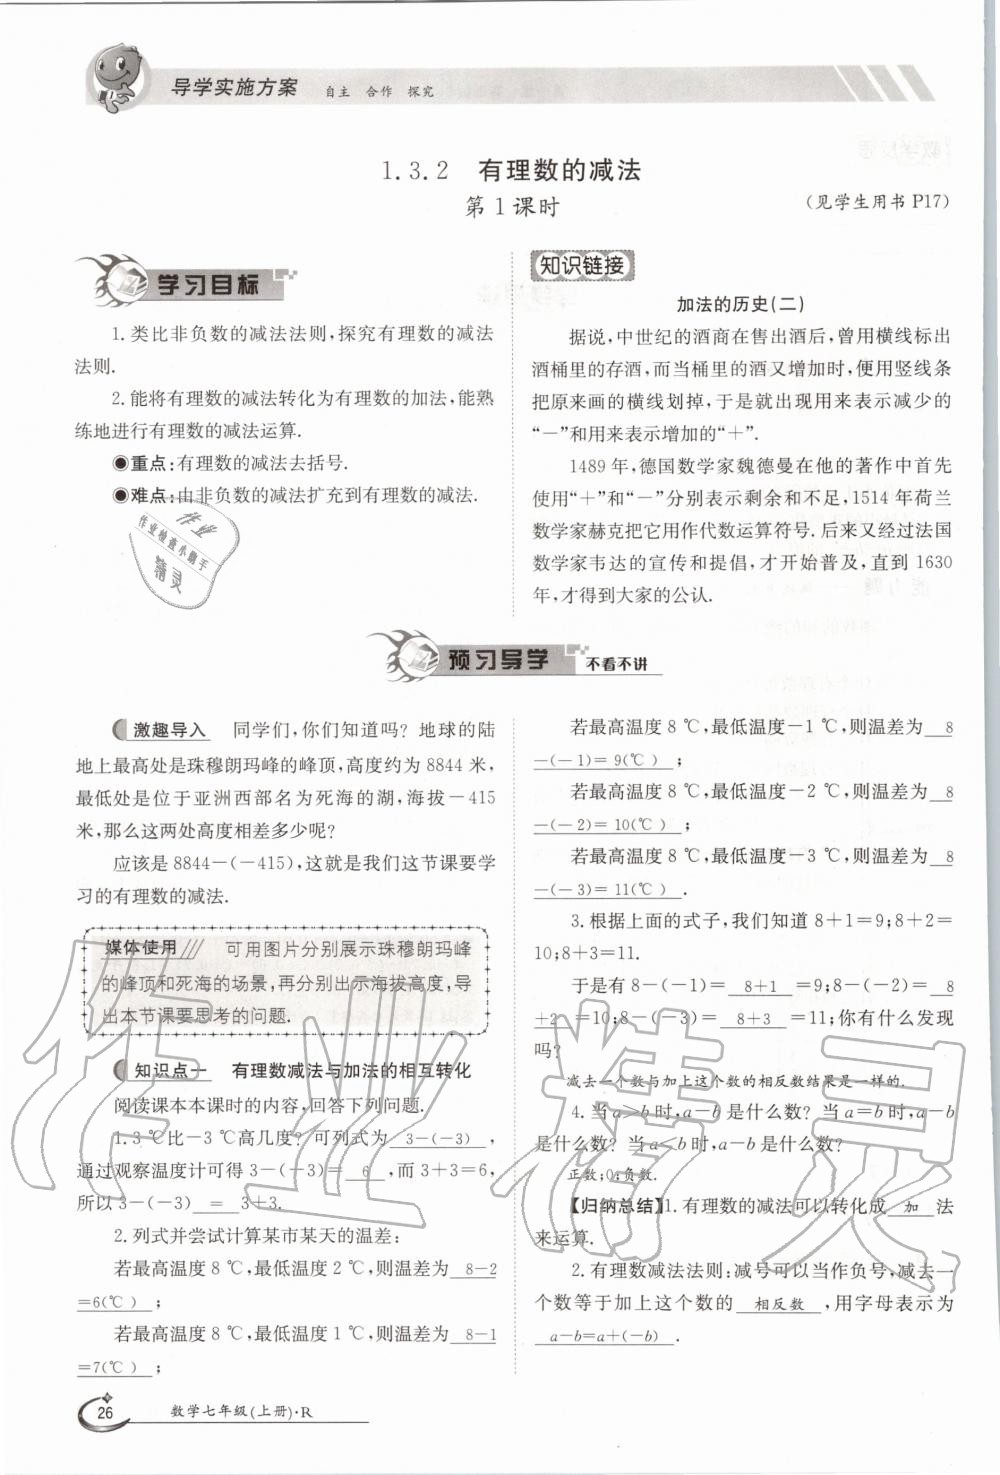 导学实施方案 自主 合作 探究
1.3.2 有理数的减法
第1课时
(见学生用书 P17)
学习目标
1. 类比非负数的减法法则,探究有理数的减法
法则.
2.能将有理数的减法转化为有理数的加法,能熟
练地进行有理数的减法运算.
●重点:有理数的减法去括号.
●难点:由非负数的减法扩充到有理数的减法.
知识链接
加法的历史(二)
据说,中世纪的酒商在售出酒后,曾用横线标出
酒桶里的存酒,而当桶里的酒又增加时,便用竖线条
把原来画的横线划掉,于是就出现用来表示减少的
“-”和用来表示增加的“+”.
1489 年,德国数学家魏德曼在他的著作中首先
使用“+”和“-”分别表示剩余和不足,1514 年荷兰
数学家赫克把它用作代数运算符号. 后来又经过法国
数学家韦达的宣传和提倡,才开始普及,直到 1630
年,才得到大家的公认.
作业
作业检查小助手
精灵
预习导学 不看不讲
激趣导入 同学们,你们知道吗? 地球的陆
地上最高处是珠穆朗玛峰的峰顶,高度约为 8844 米,
最低处是位于亚洲西部名为死海的湖,海拔-415
米,那么这两处高度相差多少呢?
应该是 8844-(-415),这就是我们这节课要学
习的有理数的减法.
媒体使用 可用图片分别展示珠穆朗玛峰
的峰顶和死海的场景,再分别出示海拔高度,导
出本节课要思考的问题.
知识点一 有理数减法与加法的相互转化
阅读课本本课时的内容,回答下列问题.
1.3 ℃比-3 ℃高几度? 可列式为 3-(-3) ,
通过观察温度计可得 3-(-3)= 6 ,而 3+3=6,
所以 3-(-3) = 3+3.
2. 列式并尝试计算某市某天的温差:
若最高温度 8 ℃,最低温度 2 ℃,则温差为 8-2
=6(℃) ;
若最高温度 8 ℃,最低温度 1 ℃,则温差为 8-1
=7(℃) ;
若最高温度 8 ℃,最低温度-1 ℃,则温差为 8
-(-1)= 9(℃) ;
若最高温度 8 ℃,最低温度-2 ℃,则温差为 8
-(-2)= 10(℃) ;
若最高温度 8 ℃,最低温度-3 ℃,则温差为 8
-(-3)= 11(℃) .
3.根据上面的式子,我们知道 8+1=9;8+2=
10;8+3=11.
于是有 8-(-1)= 8+1 =9;8-(-2)= 8
+2 =10;8-(-3)= 8+3 =11;你有什么发现
吗?
减去一个数与加上这个数的相反数结果是一样的.
4. 当 a>b 时,a-b 是什么数? 当 a=b 时,a-b
是什么数? 当 a<b 时,a-b 是什么数?
正数;0;负数.
【归纳总结】1. 有理数的减法可以转化成 加 法
来运算.
2. 有理数减法法则:减号可以当作负号,减去一
个数等于加上这个数的 相反数 ,用字母表示为
a-b=a+(-b) .
26 数学七年级(上册)·R
作业精灵